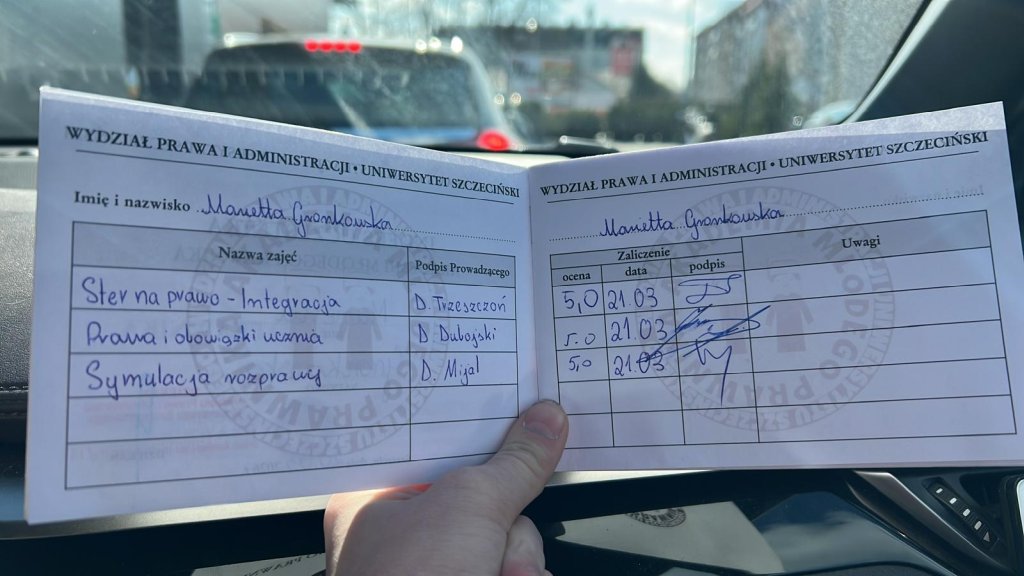 WYDZIAŁ PRAWA I ADMINISTRACJI • UNIWERSYTET SZCZECIŃSKI
Imię i nazwisko Marietta Gronkowska
Nazwa zajęć Podpis Prowadzącego
Ster na prawo - Integracja D. Trzeszczoń
Prawa i obowiązki ucznia D. Dubojski
Symulacja rozprawy D. Mijal
WYDZIAŁ PRAWA I ADMINISTRACJI • UNIWERSYTET SZCZECIŃSKI
Marietta Gronkowska
Zaliczenie Uwagi
ocena data podpis
5,0 21.03
5.0 21.03
5,0 21.03